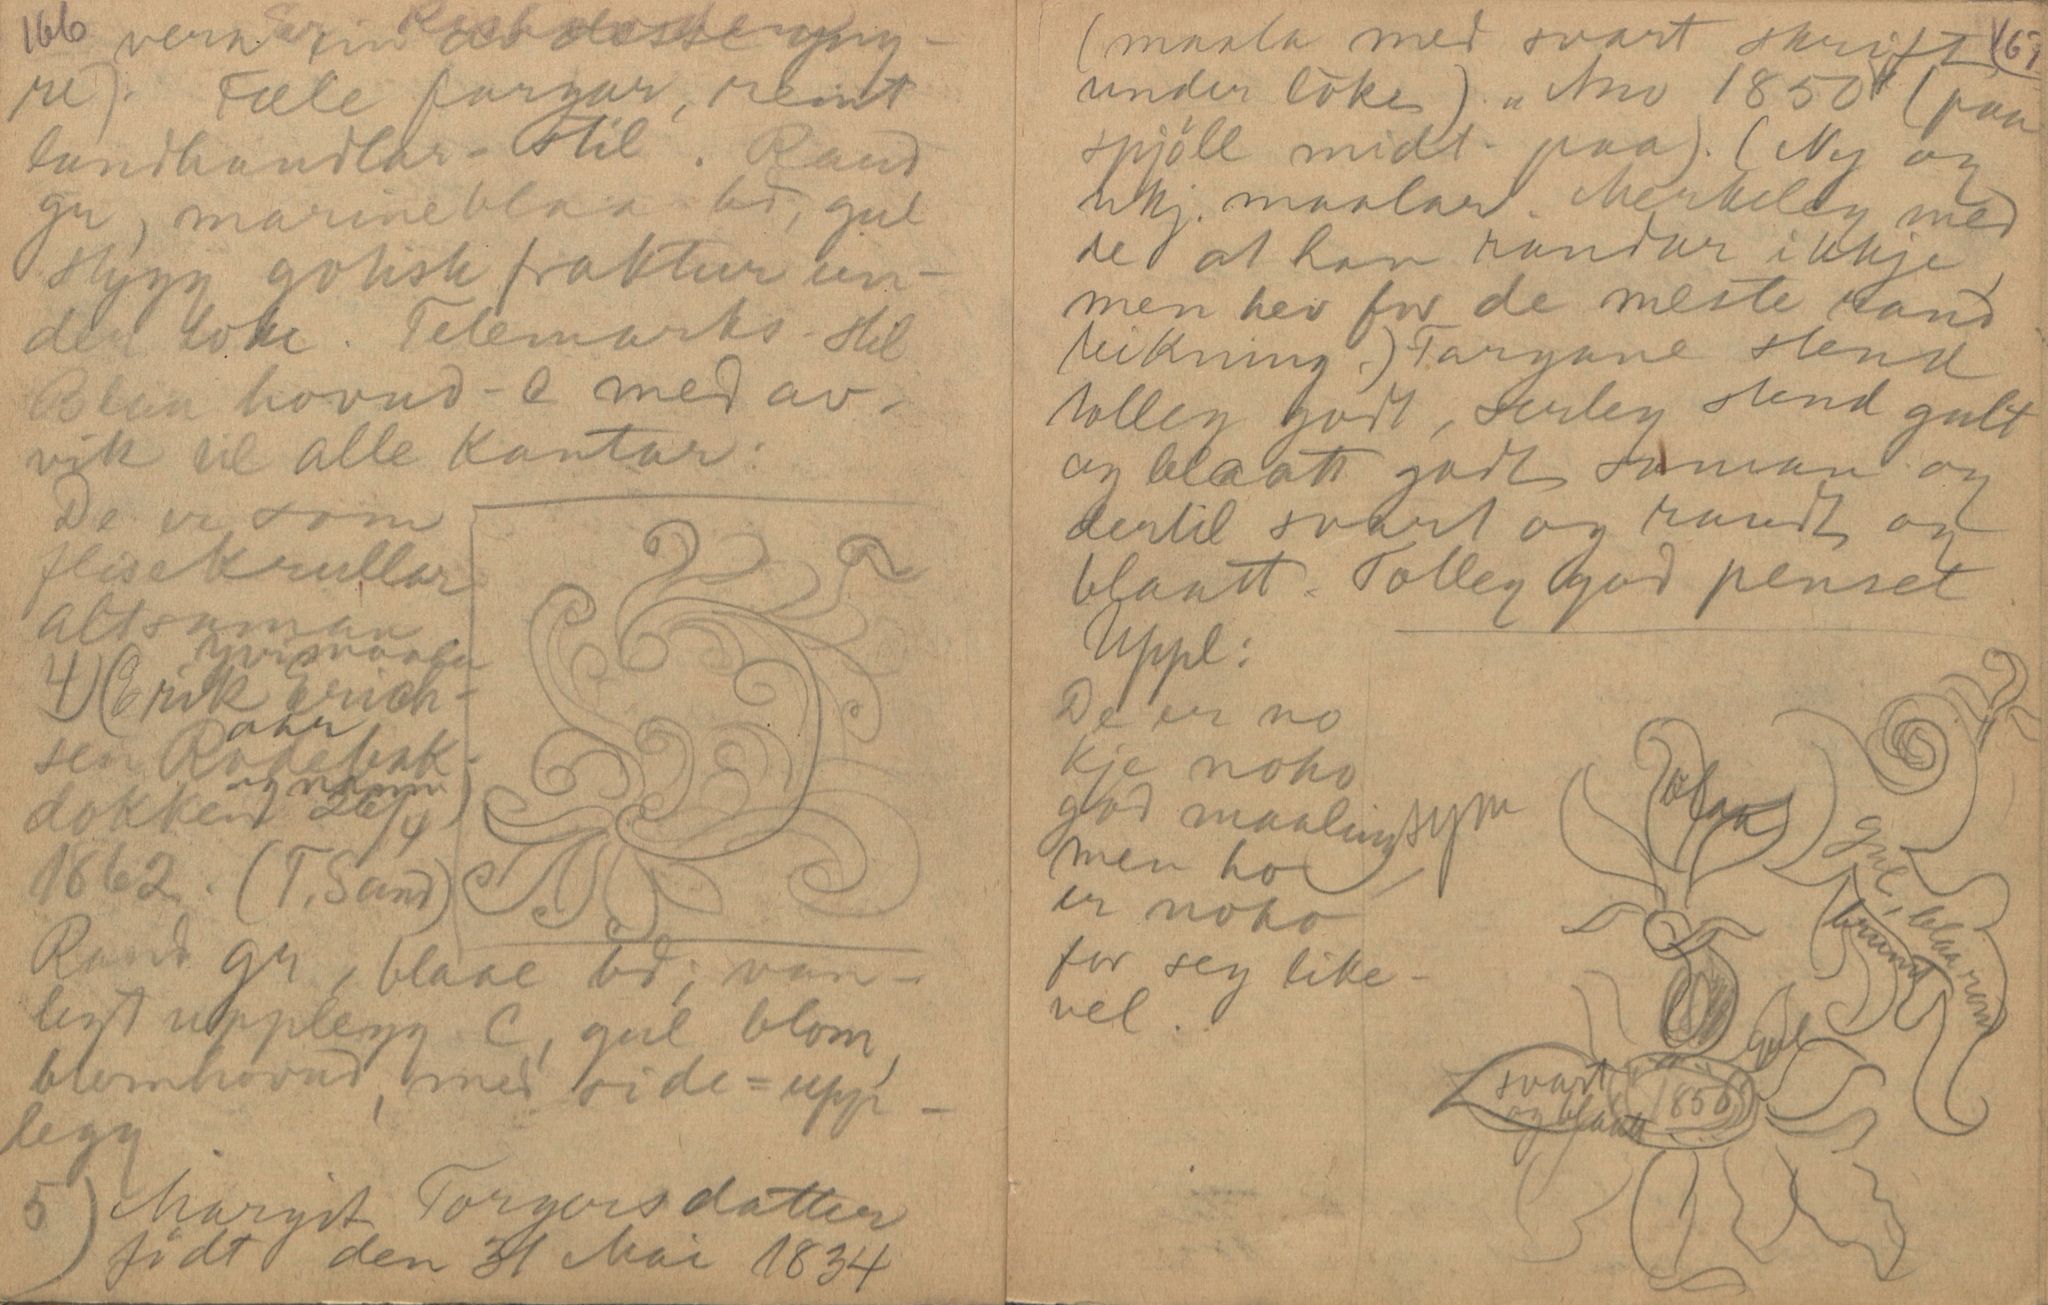 166
vera
re). Fæle fargar, reint
landhandlar-stil. Raud
gr, marineblaa bd, gul
stygg gotisk fraktur un-
der loke. Telemarks-stil
Blaa hovud-C med av-
vik til alle kantar.
De er som
flisekrullar
altsaman
4) Erik Erich-
sen Rodebak-
dokken 26/4
1862. (T. Sand)
Raud gr, blaae bd; van-
legt upplegg C, gul blom,
blomhovud, med side=upp-
legg
5) Margit Torgersdatter
födt den 31 Mai 1834
167
(maala med svart skrift
under loke). "Ano 1850" (paa
spjöll midt-paa). (Ny og
ukj. maalar. Merkeleg med
de at han randar ikkje,
men hev for de meste rand
teikning.) Fargane stend
tolleg godt, serleg stend gult
og blaatt godt saman og
dertil svart og raudt og
blaatt. Tolleg god pensel
Uppl:
De er no
kje noko
god maaling
men ho
er noko
for seg like-
vel.
blaa
gul, blaa
brunt
gul
svart
og blaatt
1850